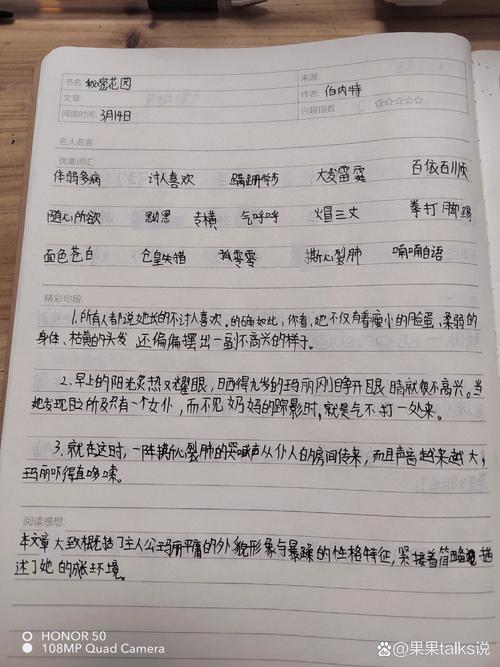 书名: 秘密花园
来源:
文章:
作者: 伯内特
阅读时间: 3月14日
兴趣指数 ☆☆☆☆☆
名人名言
优美词汇
体弱多病 讨人喜欢 蹒跚学步 大发雷霆 百依百顺
随心所欲 勤黑 专横 气呼呼 火冒三丈 拳打脚踢
面色苍白 仓皇失措 孤零零 撕心裂肺 喃喃自语
精彩句段
1.所有人都说她长的不讨人喜欢。的确如此,你看,她不仅有着瘦小的脸蛋,柔弱的
身体、枯黄的头发 还偏偏摆出一副不高兴的样子。
2.早上的阳光炙热又耀眼,因而九岁的玛丽刚睁开眼睛就很不高兴。当
她发现屋内只有一个女仆,而不见奶妈的踪影时,就是气不打一处来。
3.就在这时,一阵撕心裂肺的哭喊声从仆人的房间传来,而且声音越来越大,
玛丽吓得直哆嗦。
阅读感想:
本文章大致概括了主人公玛丽平庸的外貌形象与暴躁的性格特征,紧接着简略地描
述了她的成长环境。
HONOR 50
108MP Quad Camera
@果果talks说